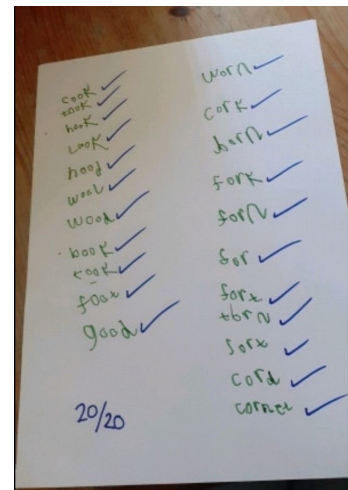 cook
took
hook
Look
hood
wool
wood
book
rook
foot
good
20/20
worN
cork
born
fork
forN
for
fort
torN
sort
cord
corner